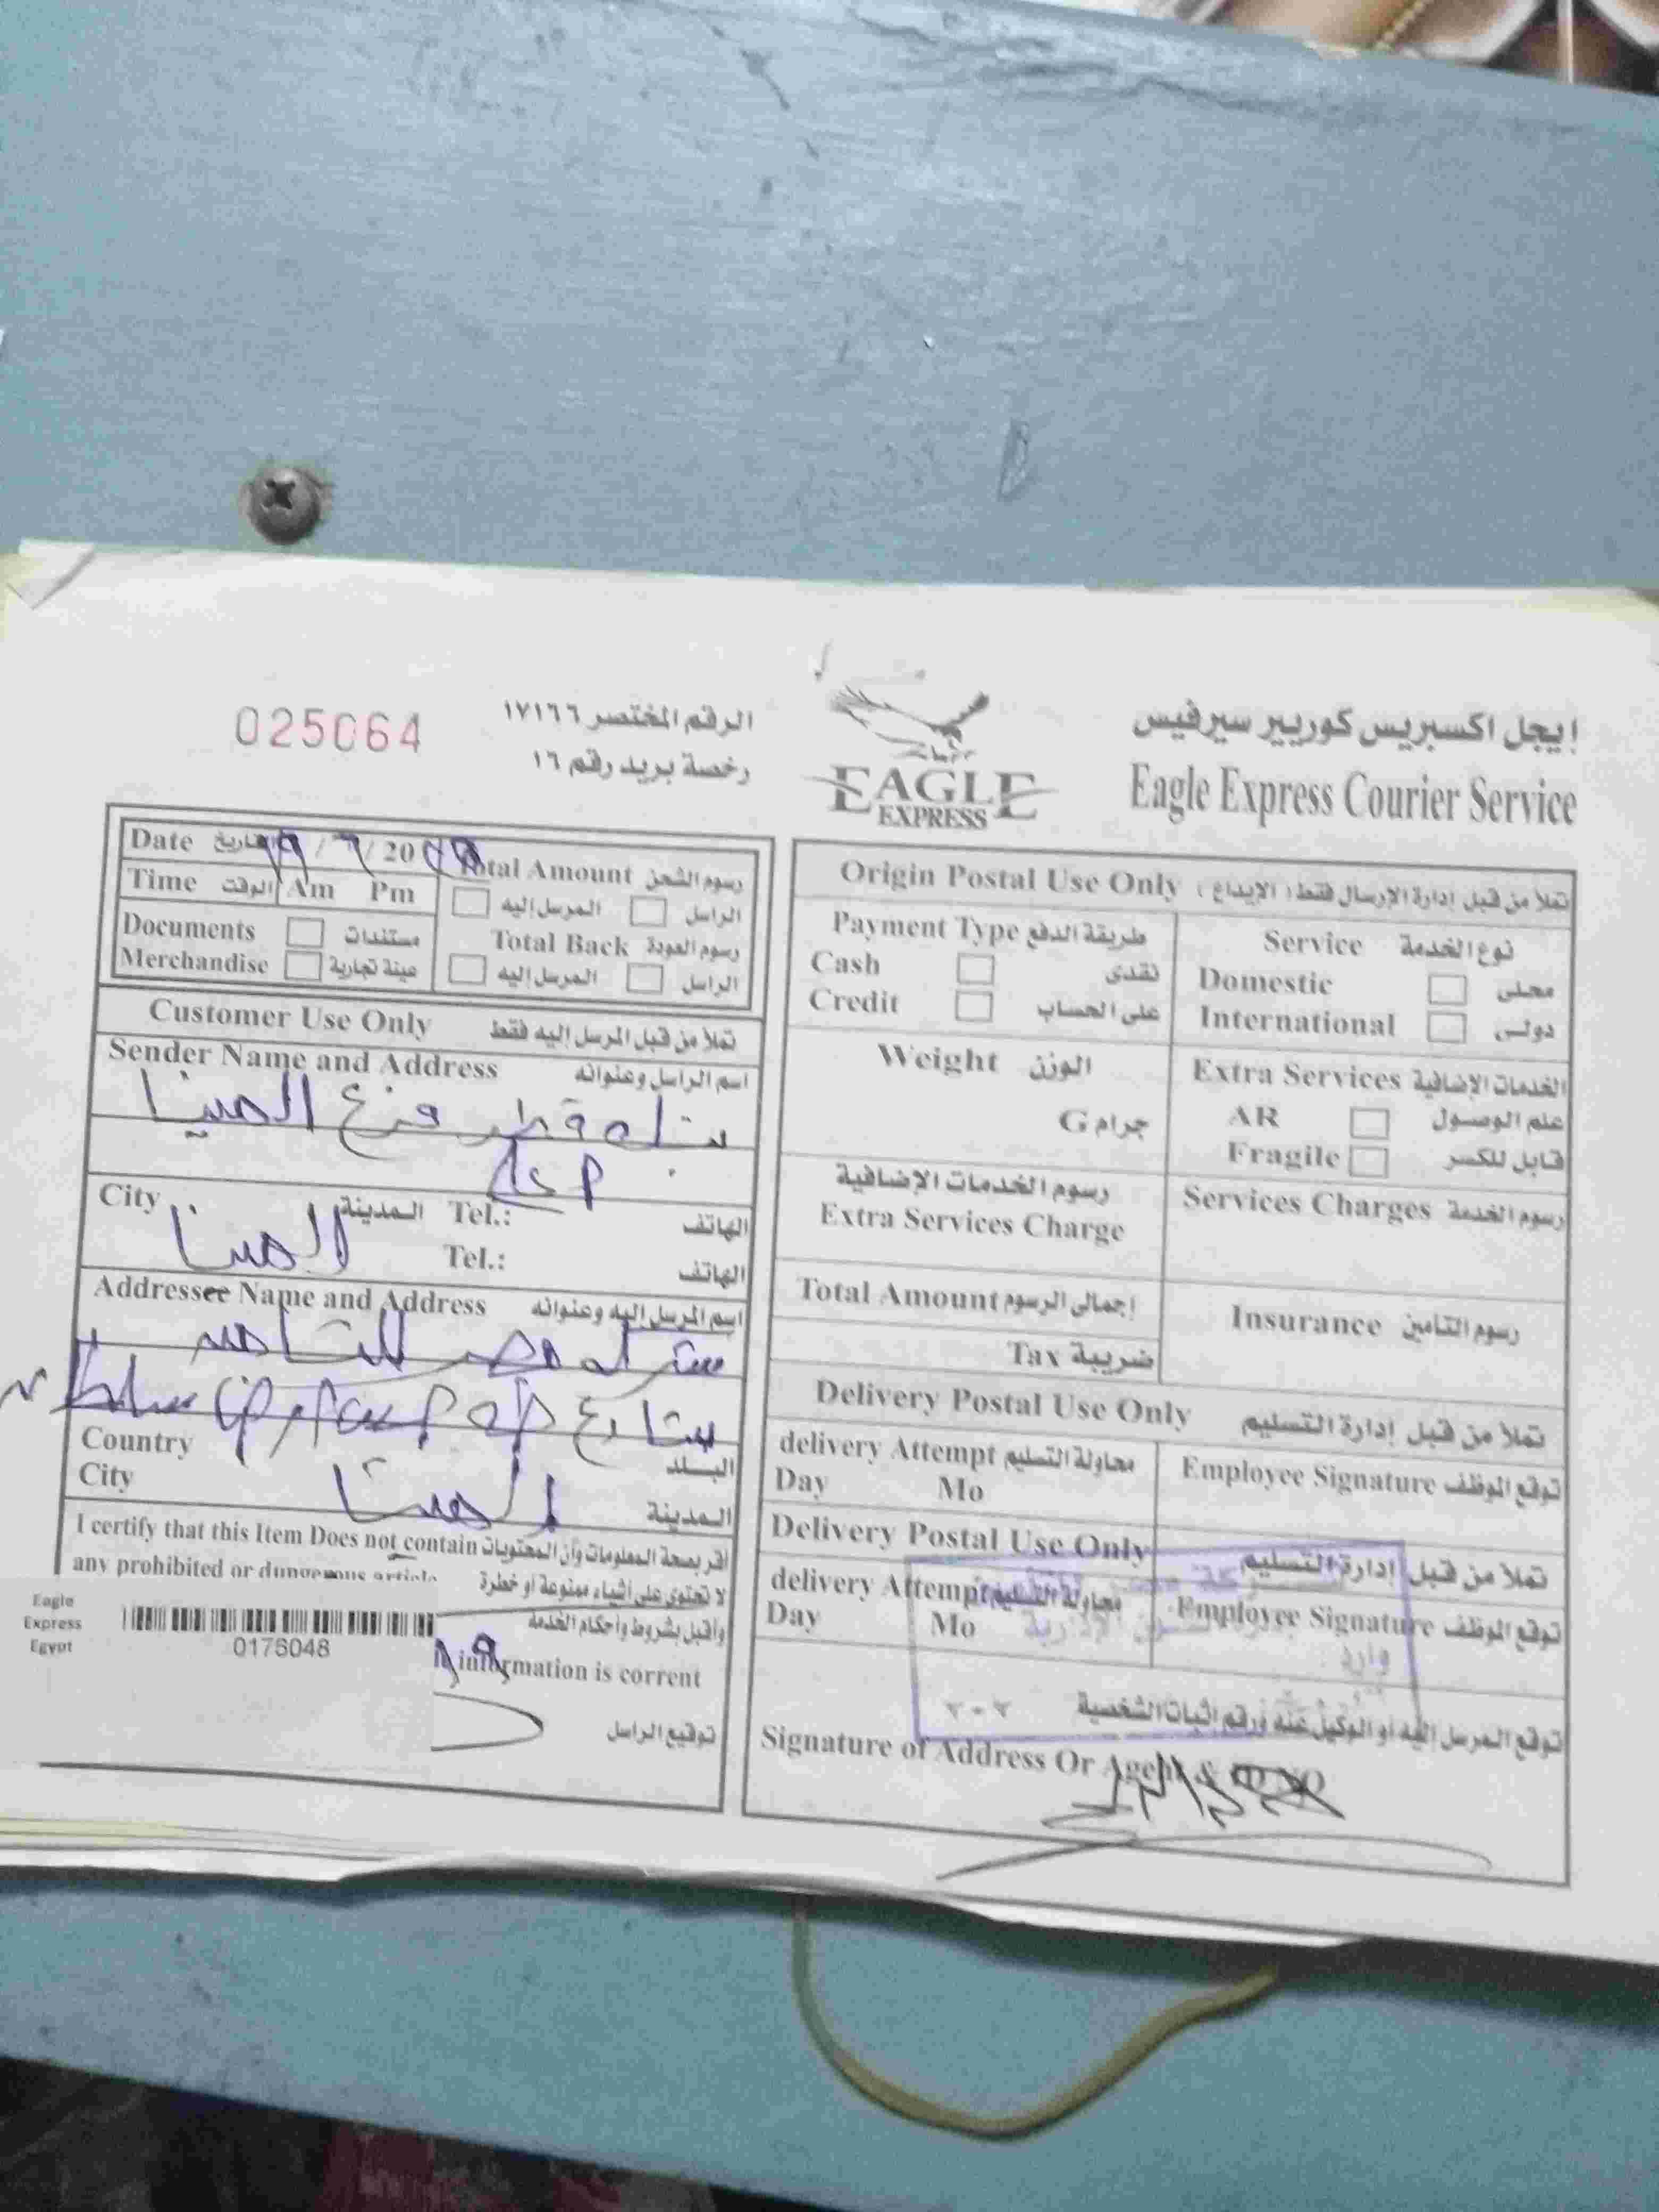 إيجل اكسبريس كوريير سيرفيس
Eagle Express Courier Service
EAGLE
EXPRESS
الرقم المختصر ١٧١٦٦
رخصة بريد رقم ١٦
025064
Date / / 20 تاريخ
Time الوقت Am Pm
Documents مستندات
Merchandise عينة تجارية
Total Amount رسوم الشحن
الراسل المرسل إليه
Total Back رسوم العودة
الراسل المرسل إليه
Customer Use Only تملأ من قبل المرسل إليه فقط
Sender Name and Address اسم الراسل وعنوانه
قطر فرع المنيا
City المدينة Tel.: الهاتف
المنيا
Tel.: الهاتف
Addressee Name and Address اسم المرسل إليه وعنوانه
مصر للتامين
شارع
Country البلد
City المدينة
المنيا
I certify that this Item Does not contain أقر بصحة المعلومات وأن المحتويات
any prohibited or dungerous article لا تحتوى على أشياء ممنوعة أو خطرة
وأقبل بشروط وأحكام الخدمة
information is corrent
توقيع الراسل
Eagle
Express
Egypt
0175048
Origin Postal Use Only تملأ من قبل إدارة الإرسال فقط (الإيداع)
Payment Type طريقة الدفع
Cash نقدى
Credit على الحساب
Service نوع الخدمة
Domestic محلى
International دولى
Weight الوزن
G جرام
Extra Services الخدمات الإضافية
AR علم الوصول
Fragile قابل للكسر
رسوم الخدمات الإضافية
Extra Services Charge
Services Charges رسوم الخدمة
Total Amount إجمالى الرسوم
Tax ضريبة
Insurance رسوم التامين
Delivery Postal Use Only تملأ من قبل إدارة التسليم
delivery Attempt محاولة التسليم
Day Mo
Employee Signature توقع الموظف
Delivery Postal Use Only تملأ من قبل إدارة التسليم
delivery Attempt محاولة التسليم
Day Mo
Employee Signature توقع الموظف
وارد
توقع المرسل إليه أو الوكيل عنه ورقم اثبات الشخصية
Signature of Address Or Agent & ID NO